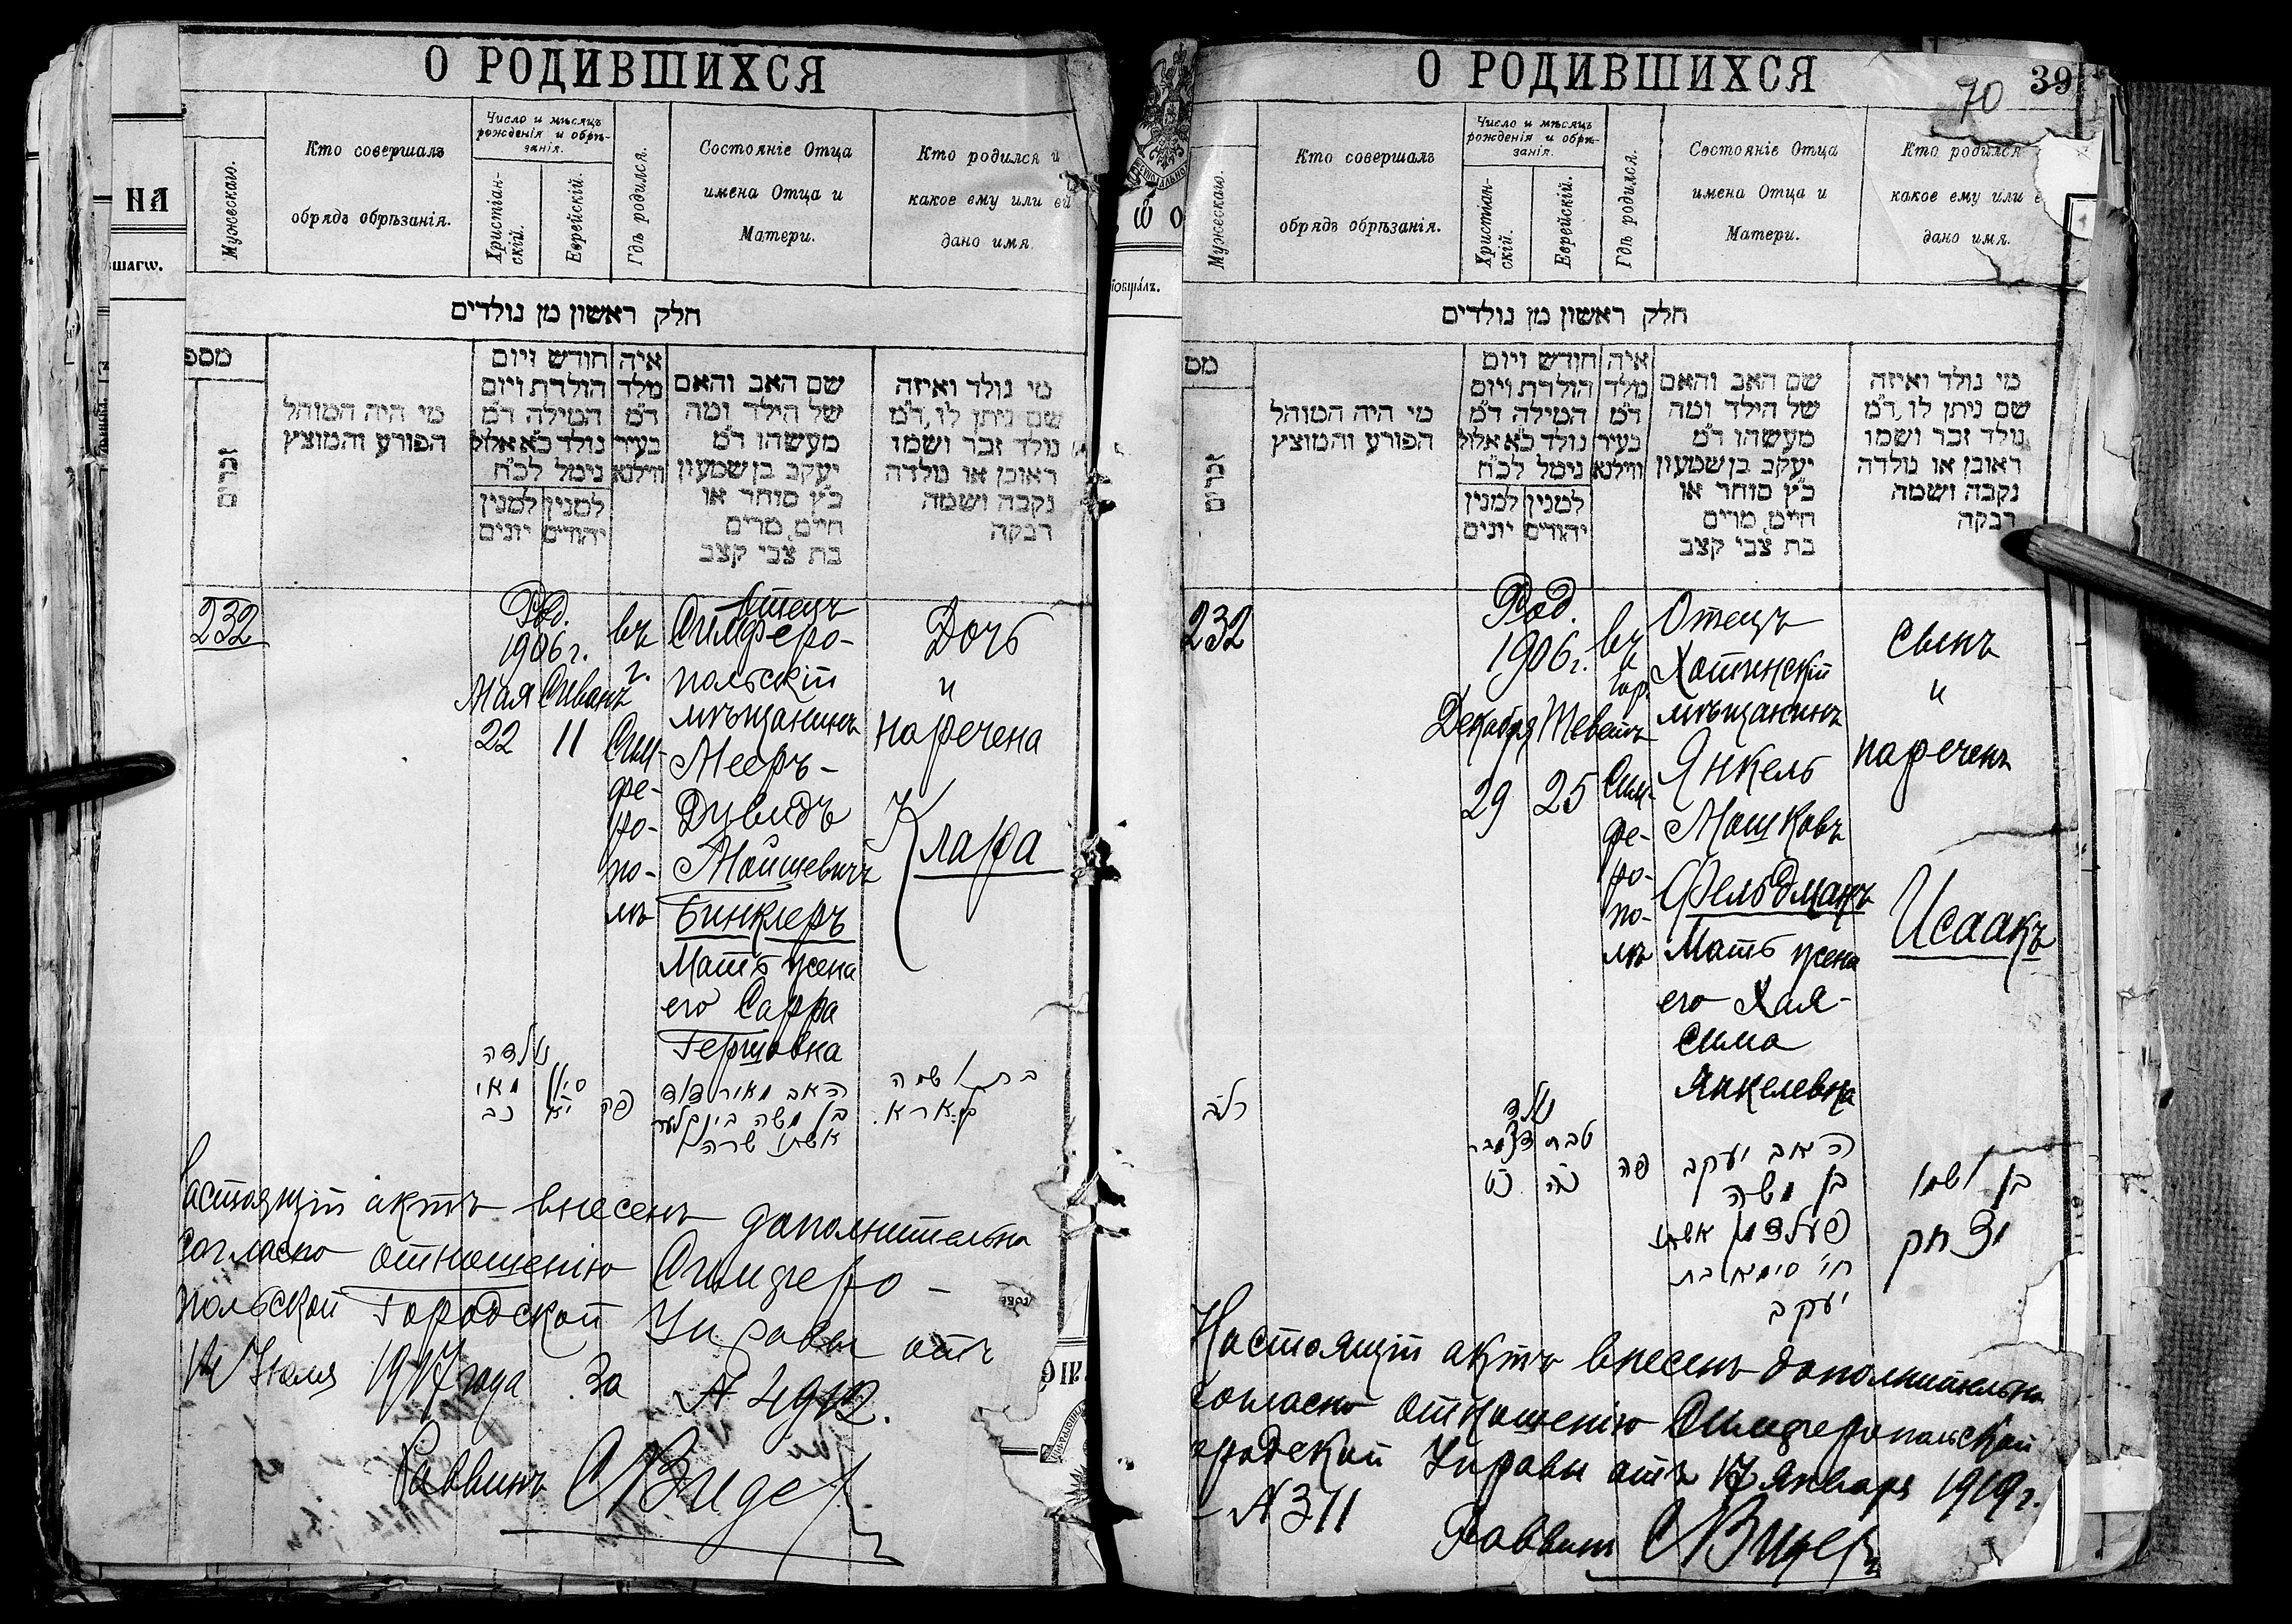 О РОДИВШИХСЯ
НА
шагѡ.
Мужескаго.
Кто совершалъ
обрядъ обрѣзанія.
Число и мѣсяцъ
рожденія и обрѣ-
занія.
Христіан-
скій.
Еврейскій.
Гдѣ родился.
Состояніе Отца
имена Отца и
Матери.
Кто родился и
какое ему или ей
дано имя.
חלק ראשון מן נולדים
מספ
זכרים
מי היה המוהל
הפורע והמוצץ
חודש ויום
הולדת ויום
המילה ד"מ
נולד כ"א אלול
נימל לכ"ח
למנין יהודים
למנין יונים
איה
מלד
ד"מ
בעיר
ווילנא
שם האב והאם
של הילד ומה
מעשהו ד"מ
יעקב בן שמעון
כ"ץ סוחר או
חיים, מרים
בת צבי קצב
מי נולד ואיזה
שם ניתן לו, ד"מ
נולד זכר ושמו
ראובן או נולדה
נקבה ושמה
רבקה
232
Род.
1906 г.
Мая Сиванъ
22 11
въ
г.
Сим-
фе-
ро-
по-
лѣ
Отецъ
Симферо-
польскій
мѣщанинъ
Мееръ-
Дувидъ
Мойшевичъ
Бинклеръ
Мать жена
его Сарра
Гершовна
Дочь
и
наречена
Клара
נולדה
סיון מאי
יא כב
פה
האב מאיר דוד
בן משה בינקלער
אשתו שרה
בת ושמה
קלארא.
Настоящій актъ внесенъ дополнительно
согласно отношенію Симферо-
польской Городской Управы отъ
14 Июля 1917 года за № 4912.
Раввинъ
О РОДИВШИХСЯ
70
39
ѡ о
Мужескаго.
Кто совершалъ
обрядъ обрѣзанія.
Число и мѣсяцъ
рожденія и обрѣ-
занія.
Христіан-
скій.
Еврейскій.
Гдѣ родился.
Состояніе Отца
имена Отца и
Матери.
Кто родился
какое ему или е
дано имя.
חלק ראשון מן נולדים
מס
זכרים
מי היה המוהל
הפורע והמוצץ
חודש ויום
הולדת ויום
המילה ד"מ
נולד כ"א אלול
נימל לכ"ח
למנין יהודים
למנין יונים
איה
מלד
ד"מ
בעיר
ווילנא
שם האב והאם
של הילד ומה
מעשהו ד"מ
יעקב בן שמעון
כ"ץ סוחר או
חיים, מרים
בת צבי קצב
מי נולד ואיזה
שם ניתן לו, ד"מ
נולד זכר ושמו
ראובן או נולדה
נקבה ושמה
רבקה
232
Род.
1906 г.
Декабря Теветъ
29 25
въ
гор.
Сим-
фе-
ро-
по-
лѣ
Отецъ
Хотинскій
мѣщанинъ
Янкель
Мошковъ
Фельдманъ
Мать жена
его Хая-
Сима
Янкелевна
Сынъ
и
нареченъ
Исаакъ
רלב
נולד
טבת דצמבר
כה כט
פה
האב יעקב
בן משה
פעלדמן אשתו
חי' סימא בת
יעקב
בן ושמו
יצחק
Настоящій актъ внесенъ дополнительно
согласно отношенію Симферопольской
городской Управы отъ 17 Января 1919 г.
№ 311
Раввинъ